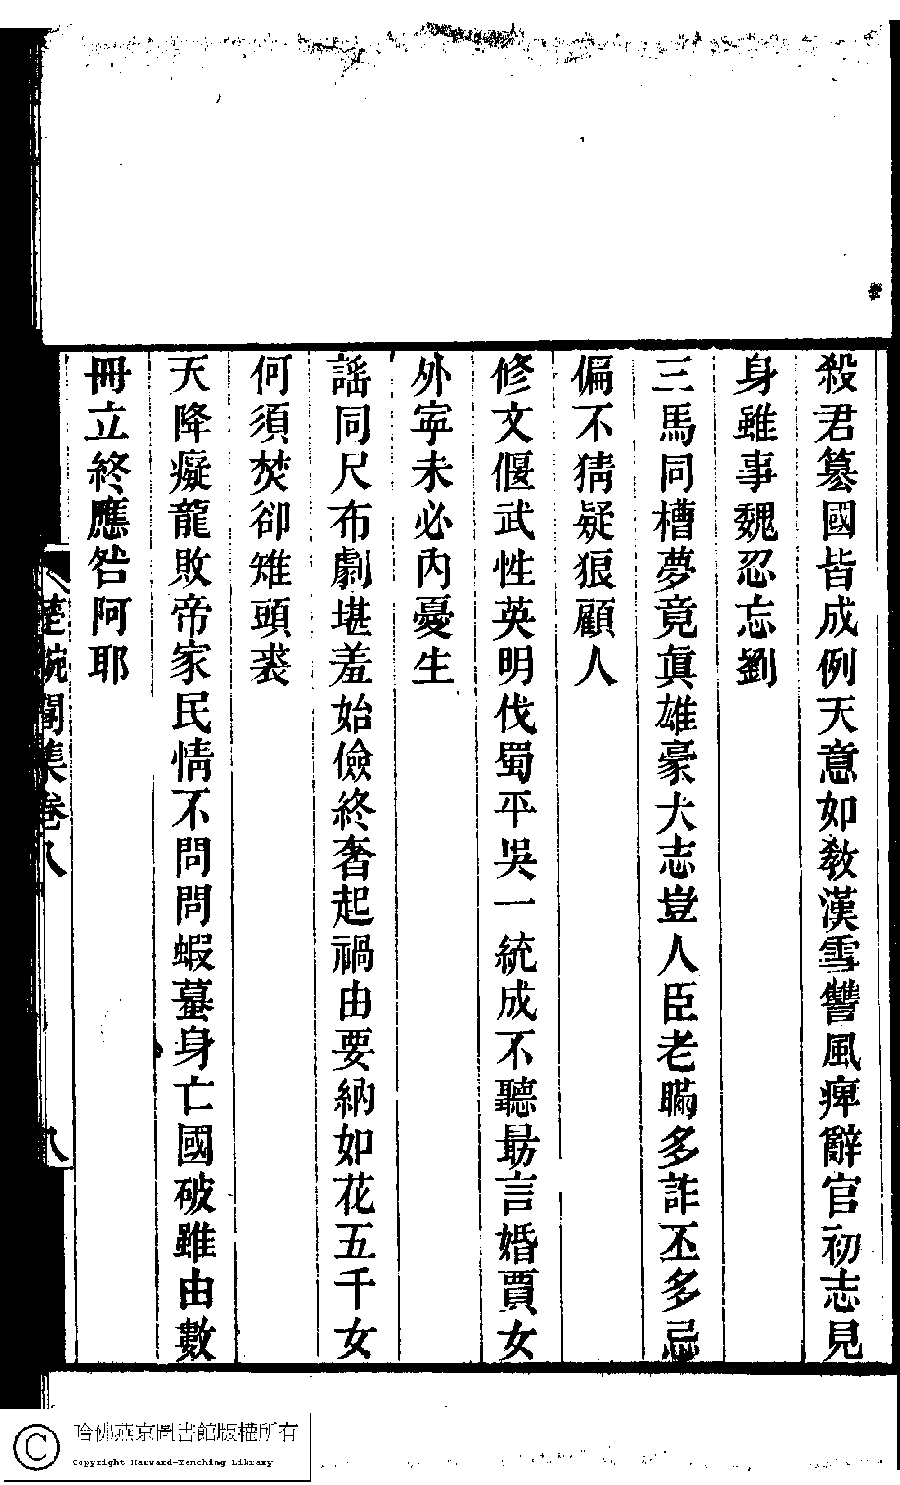 殺君篡國皆成例天意如教漢雪讐風痺辭官初志見
身雖事魏忍忘劉
三馬同槽夢竟眞雄豪大志豈人臣老瞞多詐丕多忌
偏不猜疑狼顧人
修文偃武性英明伐蜀平吳一統成不聽勗言婚賈女
外寜未必內憂生
謠同尺布劇堪羞始儉終奢起禍由要納如花五千女
何須焚卻雉頭裘
天降癡龍敗帝家民情不問問蝦蟇身亡國破雖由數
冊立終應咎阿耶
閣集卷八
八
哈佛燕京圖書館版權所有
Copyright Harvard-Yenching Library